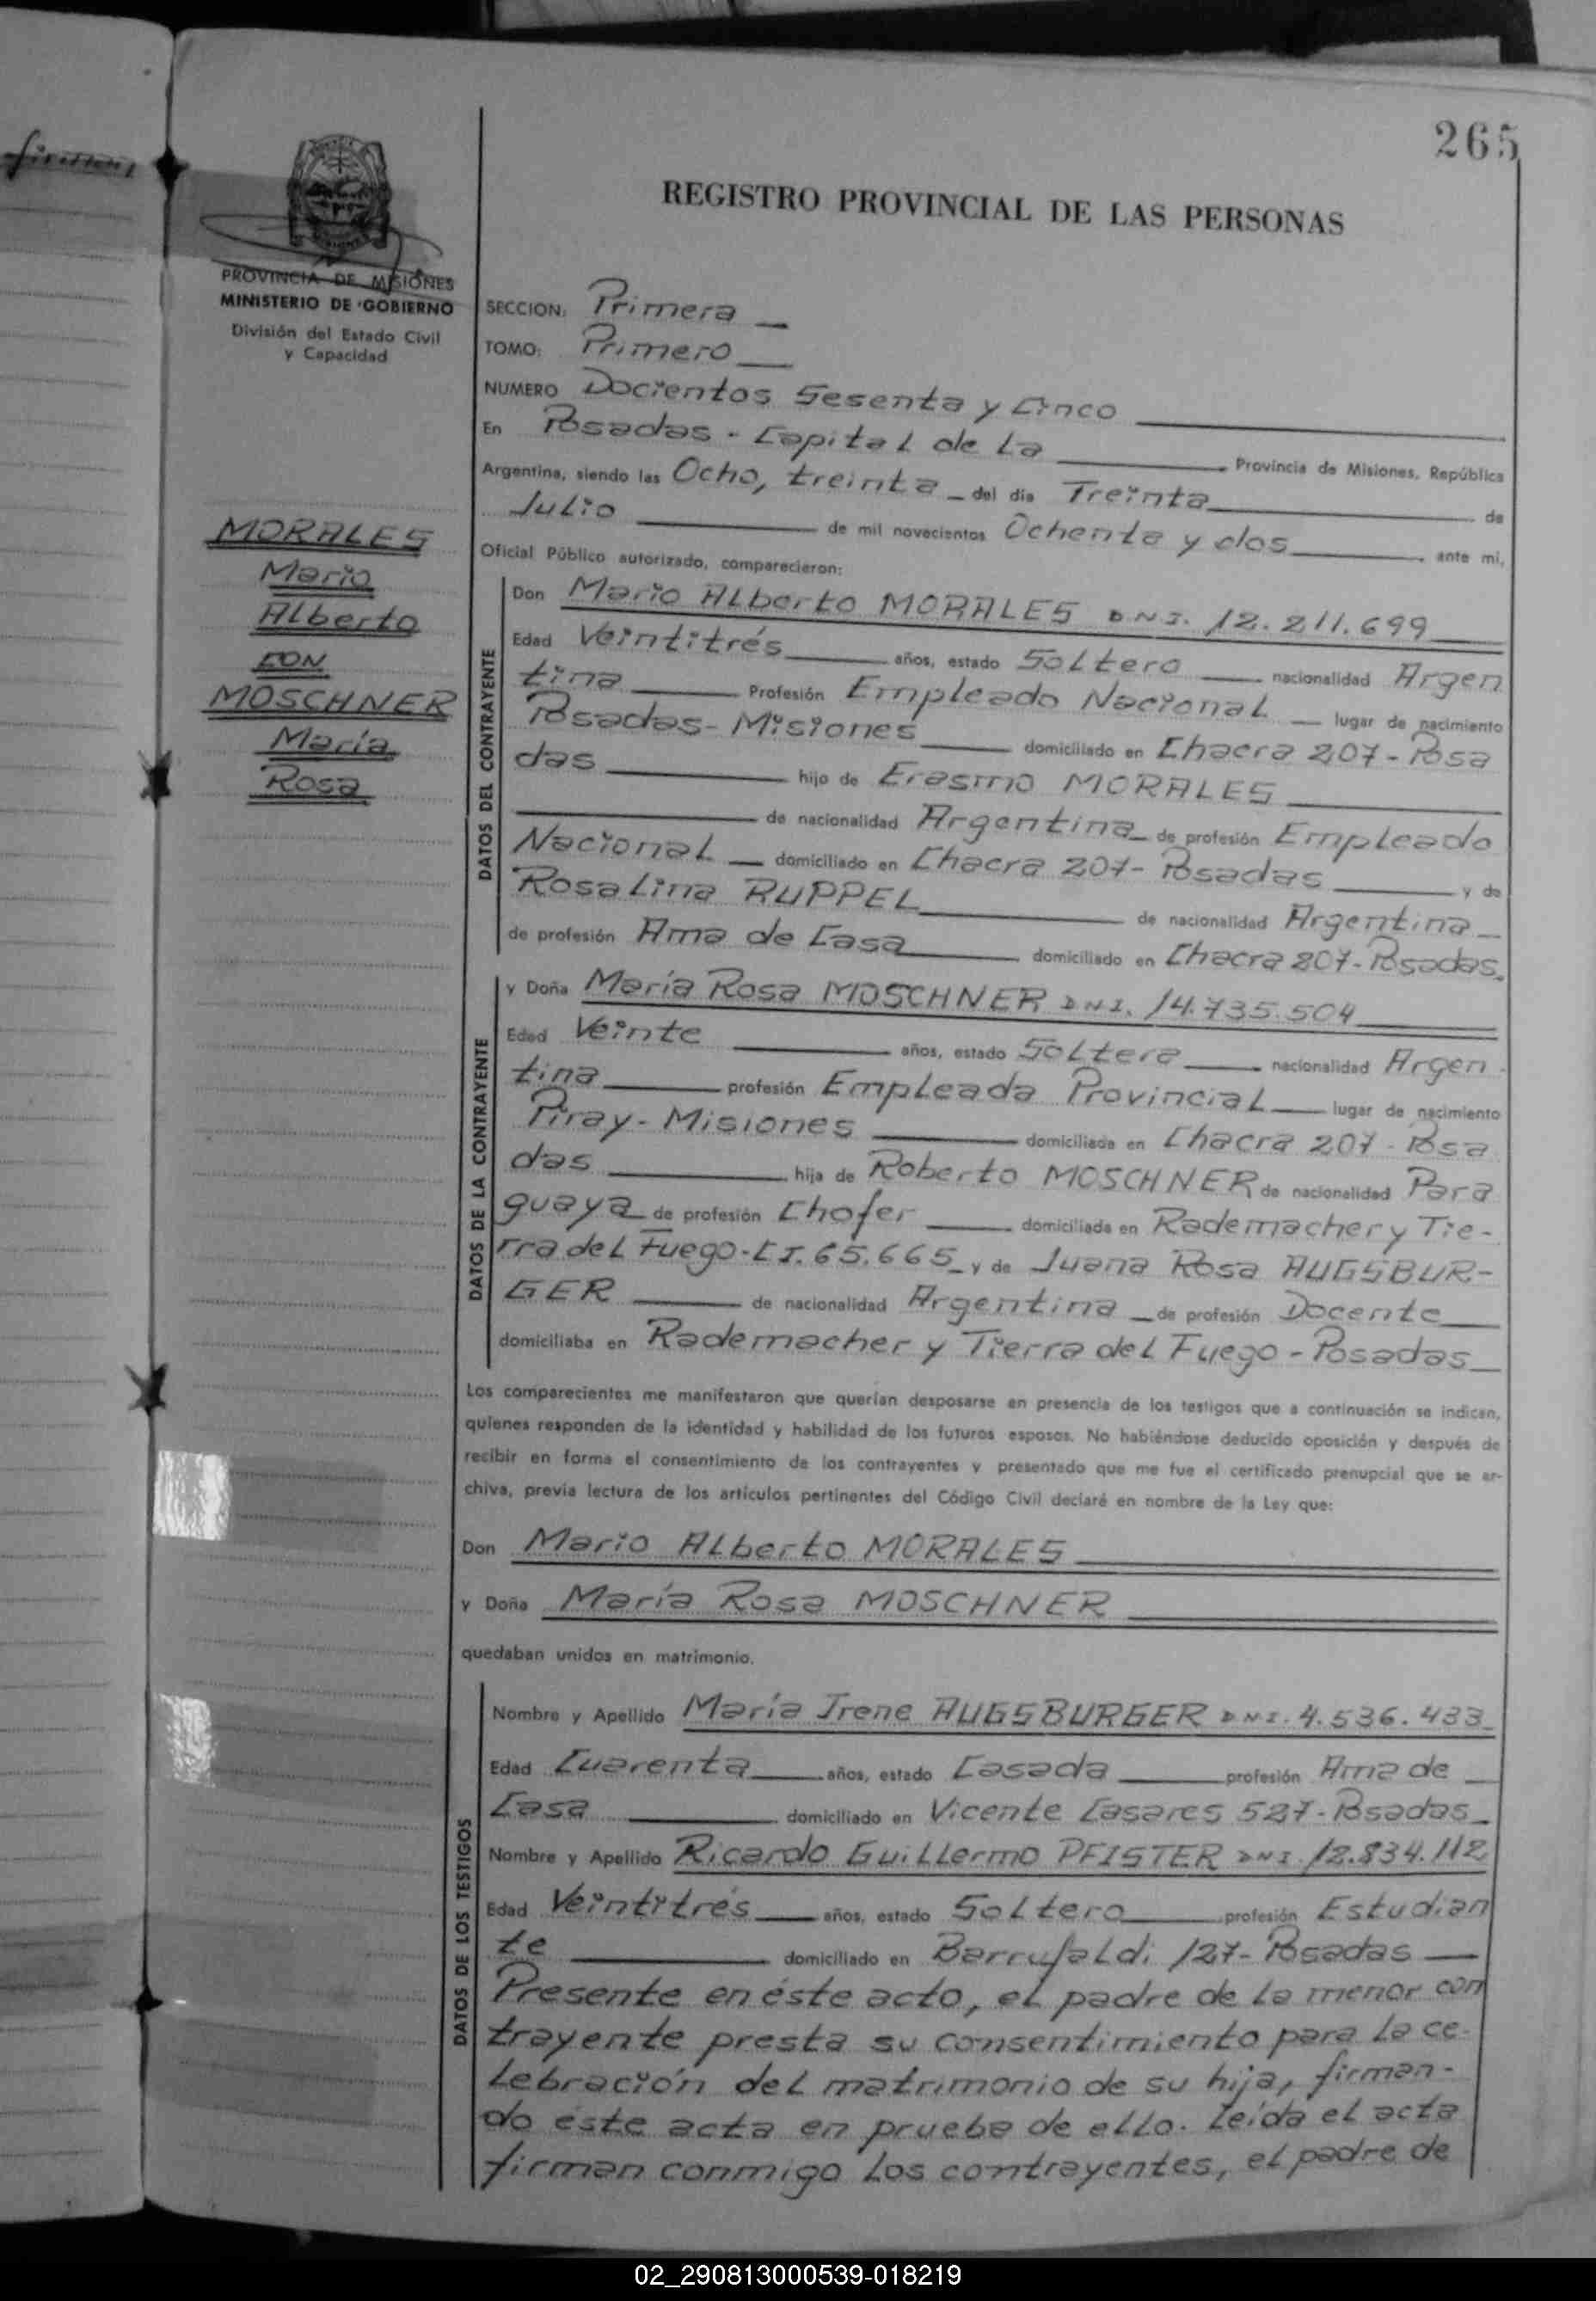 firman
265
REGISTRO PROVINCIAL DE LAS PERSONAS
PROVINCIA DE MISIONES
MINISTERIO DE GOBIERNO
División del Estado Civil
y Capacidad
MORALES
Mario
Alberto
CON
MOSCHNER
María
Rosa
SECCION: Primera
TOMO: Primero
NUMERO Docientos Sesenta y Cinco
En Posadas - Capital de La Provincia de Misiones, República
Argentina, siendo las Ocho, treinta del día Treinta de
Julio de mil novecientos Ochenta y dos ante mí,
Oficial Público autorizado, comparecieron:
DATOS DEL CONTRAYENTE
Don Mario Alberto MORALES DNI. 12.211.699
Edad Veintitrés años, estado Soltero nacionalidad Argen
tina Profesión Empleado Nacional lugar de nacimiento
Posadas - Misiones domiciliado en Chacra 207 - Posa
das hijo de Erasmo MORALES
de nacionalidad Argentina de profesión Empleado
Nacional domiciliado en Chacra 207 - Posadas y de
Rosalina RUPPEL de nacionalidad Argentina
de profesión Ama de Casa domiciliado en Chacra 207 - Posadas.
DATOS DE LA CONTRAYENTE
y Doña María Rosa MOSCHNER DNI. 14.735.504
Edad Veinte años, estado Soltera nacionalidad Argen
tina profesión Empleada Provincial lugar de nacimiento
Piray - Misiones domiciliada en Chacra 207 - Posa
das hija de Roberto MOSCHNER de nacionalidad Para
guaya de profesión Chofer domiciliada en Rademacher y Tie-
rra del Fuego - C.I. 65.665 y de Juana Rosa AUGSBUR-
GER de nacionalidad Argentina de profesión Docente
domiciliaba en Rademacher y Tierra del Fuego - Posadas
Los comparecientes me manifestaron que querían desposarse en presencia de los testigos que a continuación se indican,
quienes responden de la identidad y habilidad de los futuros esposos. No habiéndose deducido oposición y después de
recibir en forma el consentimiento de los contrayentes y presentado que me fue el certificado prenupcial que se ar-
chiva, previa lectura de los artículos pertinentes del Código Civil declaré en nombre de la Ley que:
Don Mario Alberto MORALES
y Doña María Rosa MOSCHNER
quedaban unidos en matrimonio.
DATOS DE LOS TESTIGOS
Nombre y Apellido María Irene AUGSBURGER DNI. 4.536.433
Edad Cuarenta años, estado Casada profesión Ama de
Casa domiciliado en Vicente Casares 527 - Posadas
Nombre y Apellido Ricardo Guillermo PFISTER DNI. 12.834.112
Edad Veintitrés años, estado Soltero profesión Estudian
te domiciliado en Barrufaldi 127 - Posadas
Presente en éste acto, el padre de la menor con
trayente presta su consentimiento para la ce-
lebración del matrimonio de su hija, firman-
do éste acta en prueba de ello. Leída el acta
firman conmigo los contrayentes, el padre de
02_290813000539-018219